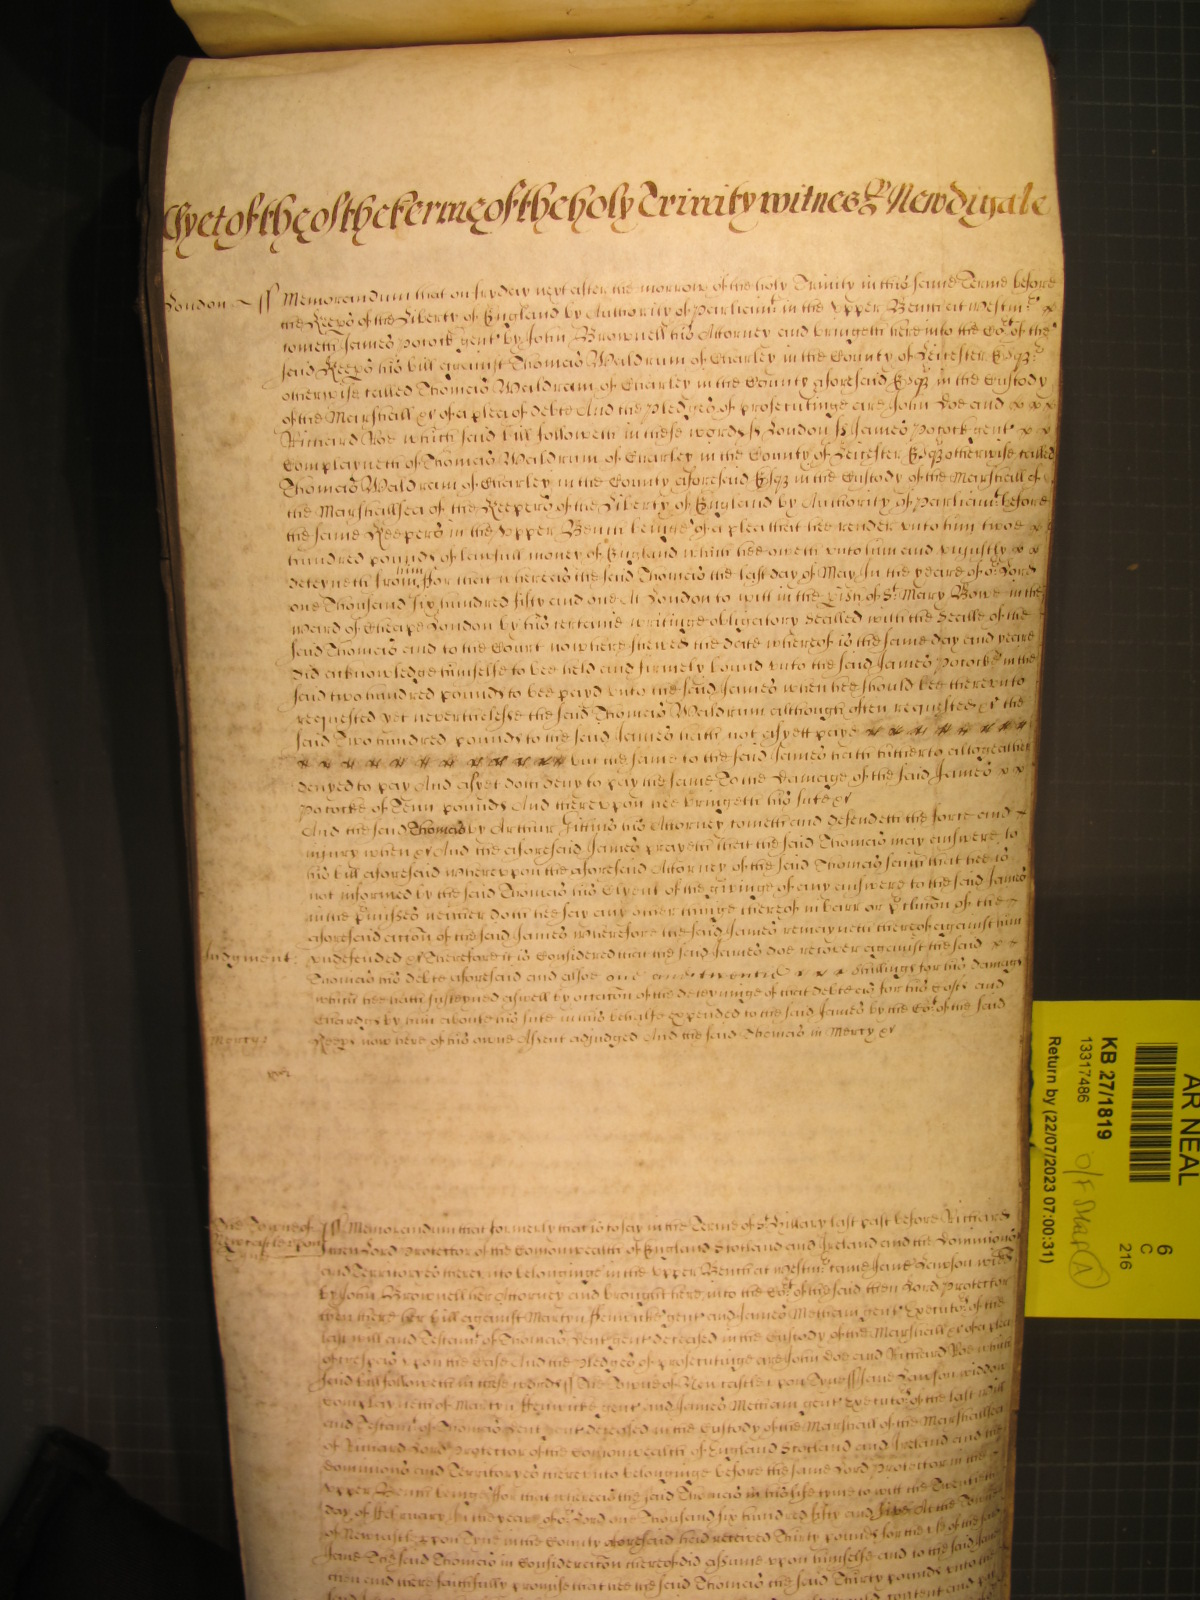 As yet of the of the terme of the holy Trinity witnes R Newdigate
London ss Memorandum that on fryday next after the morrow of the holy Trinity in this same Terme before
the Keeps of the Liberty of England by Authority of Parliamt in the Upper Bench at Westmr x
cometh James Pocock gent by John Brownell his Attorney and bringeth here into the Cort of the
said Keeps his bill against Thomas Waldrum of Charley in the County of Leicester Esqr
otherwise called Thomas Waldram of Charley in the County aforesaid Esqr in the Custody
of the Marshall &c of a plea of debte And the pledges of prosecutinge are John Doe and x x x
Richard Roe which said bill followeth in these words ss London ss James Pocock gent x x
Complayneth of Thomas Waldrum of Charley in the County of Leicester Esqr otherwise called
Thomas Waldram of Charley in the County aforesaid Esqr in the Custody of the Marshall of
the Marshallsea of the Keepers of the Liberty of England by Authority of Parliamt before
the same Keepers in the Upper Bench beinge of a plea that hee render unto him twoe x
hundred pounds of lawfull money of England which hee oweth unto him and uniustly x x
deteyneth from him For that whereas the said Thomas the last day of May In the yeare of or Lord
one Thousand six hundred fifty and one At London to witt in the pish of St Mary Bowe in the
Ward of Cheape London by his certaine writinge obligatory Sealled with the Sealle of the
said Thomas and to the Court now here shewed the date whereof is the same day and yeare
did acknowledge himselfe to bee held and firmely bound unto the said James Pococke in the
said two hundred pounds to bee payd unto the said James when hee should bee thereunto
requested yet neverthelesse the said Thomas Waldrum although often requested &c the
said Two hundred pounds to the said James hath not as yett payd
but the same to the said James hath hitherto altogeather
denyed to pay And as yet doth deny to pay the same To the damage of the said James x x
Pococke of Tenn pounds And thereupon hee bringeth his sute &c
And the said Thomas by Arthur his Attorney cometh and defendeth the force and x
iniury when &c And the aforesaid James prayeth that the said Thomas may answere to
his bill aforesaid Whereupon the aforesaid Attorney of the said Thomas saith that hee is
not informed by the said Thomas his Clyent of the givinge of any answere to the said James
in the pmisses neither doth hee say any other thinge thereof in barr or pclusion of the
aforesaid action of the said James Wherefore the said James remayneth thereof against him
Judgment: undefended &c Therefore it is Considered that the said James doe recover against the said x x
Thomas his debte aforesaid and alsoe one and twentie x x x shillings for his damage
which hee hath susteyned aswell by occation of the deteyninge of that debte as for his Costs and
Chardgs by him aboute his sute in this behalfe expended to the said James by the Cort of the said
Mercy: Keeps now here of his owne Assent adiudged And the said Thomas in Mercy &c
The Towne of Newcastle upon ss Memorandum that formerly that is to say in the Terme of St Hillary last past before Richard
then Lord Protector of the Comonwealth of England Scotland and Ireland and the Dominions
and Territoryes thereunto belonginge in the Upper Bench at Westmr came Jane Lawson widdow
by John Brownell her Attorney and brought here into the Cort of the said then Lord Protector
then there her bill against Martyn Fenwicke gent and James Metham gent Executors of the
last will and Testamt of Thomas gent deceased in the Custody of the Marshall &c of a plea
of trespas upon the Case And the pledges of prosecutinge are John Doe and Richard Roe which
said bill followeth in these words ss The Towne of Newcastle upon Tyne ss Jane Lawson widdow
complayneth of Martyn Fenwicke gent and James Metham gent Executors of the last will
and Testamt of Thomas gent deceased in the Custody of the Marshall of the Marshallsea
of Richard Lord Protector of the Comonwealth of England Scotland and Ireland and the
dominions and Territoryes thereunto belonginge before the same Lord Protector in the
Upper Bench beinge For that whereas the said Thomas in his life tyme to witt the Twentieth
day of February In the yeare of or Lord one Thousand six hundred fifty and five At the Towne
of Newcastle upon Tyne in the County aforesaid had received Thirty pounds for the use of the said
Jane The said Thomas in Consideration thereof did assume upon himselfe and to the said Jane
then and there faithfully promise that hee the said Thomas the said Thirty pounds unto the
content and pay
AR NEAL
KB 27/1819
13317486
Return by (22/07/2023 07:00:31)
6
C
216